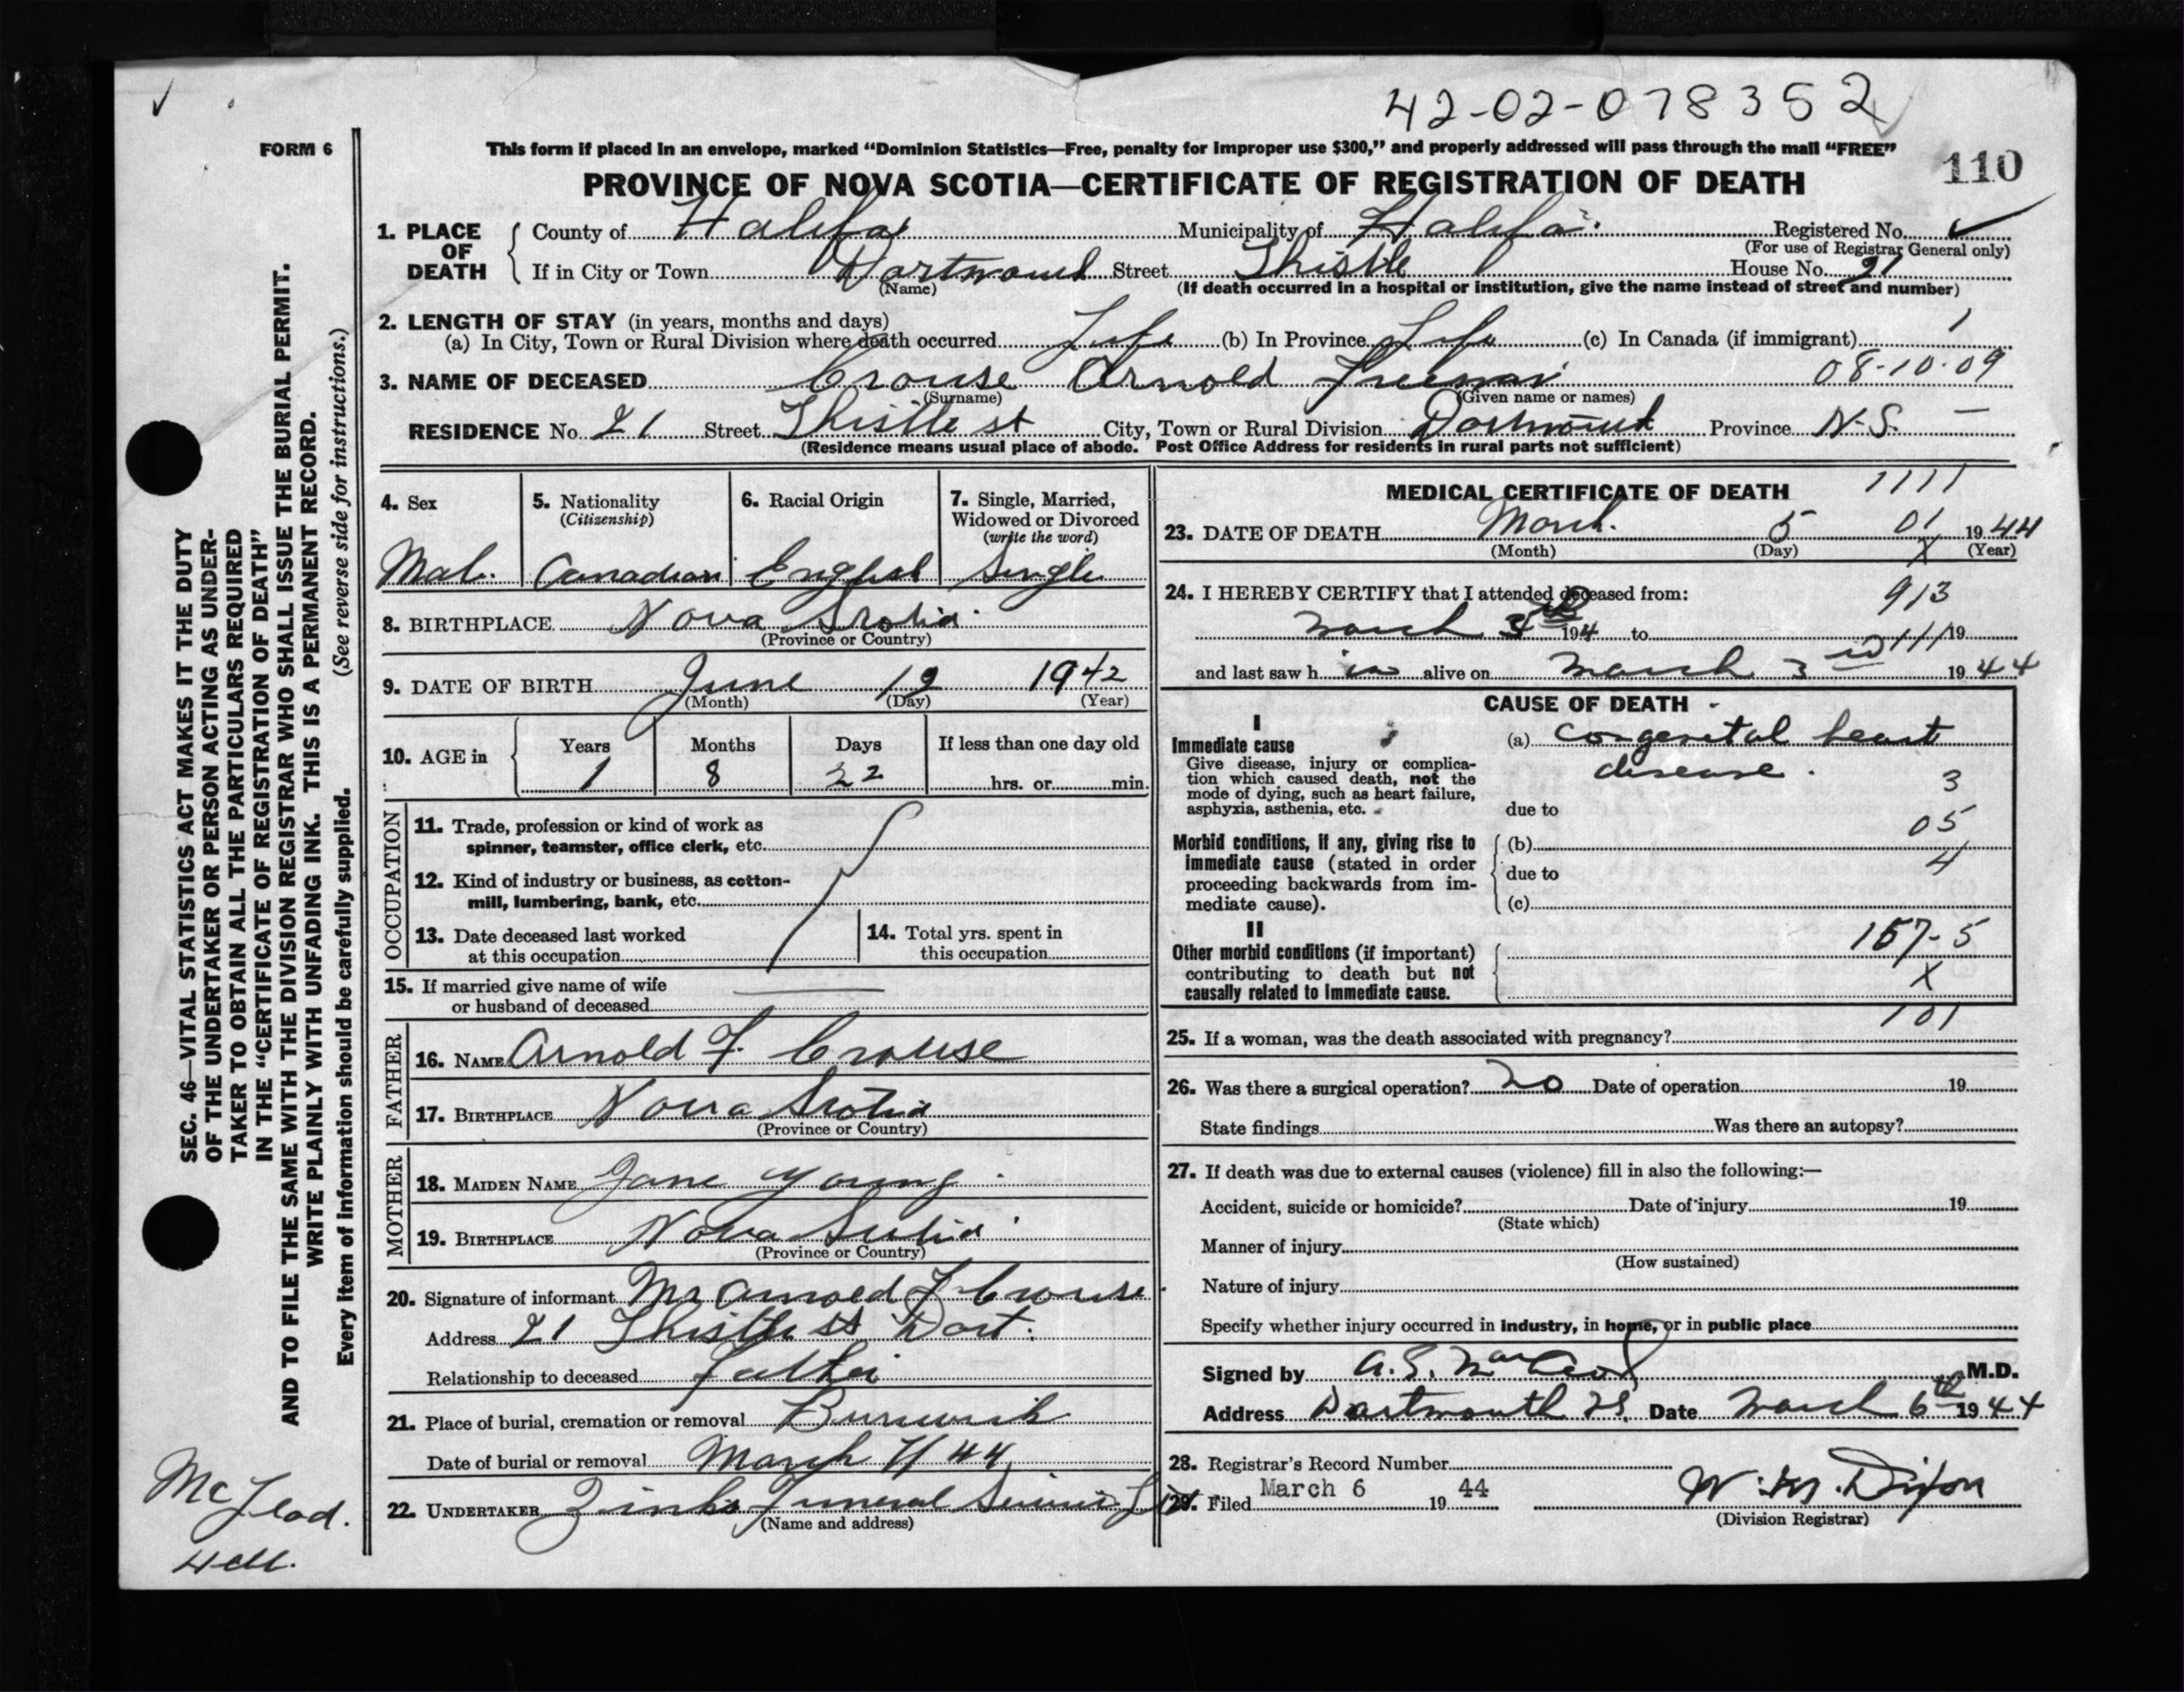 42-02-078352
FORM 6
This form if placed in an envelope, marked “Dominion Statistics—Free, penalty for improper use $300,” and properly addressed will pass through the mail “FREE”
110
PROVINCE OF NOVA SCOTIA—CERTIFICATE OF REGISTRATION OF DEATH
1. PLACE OF DEATH
County of Halifax Municipality of Halifax Registered No.
(For use of Registrar General only)
If in City or Town Dartmouth Street Thistle House No. 21
(Name) (If death occurred in a hospital or institution, give the name instead of street and number)
2. LENGTH OF STAY (in years, months and days)
(a) In City, Town or Rural Division where death occurred Life (b) In Province Life (c) In Canada (if immigrant) 1
3. NAME OF DECEASED Crouse Arnold Freeman 08-10-09
(Surname) (Given name or names)
RESIDENCE No. 21 Street Thistle st City, Town or Rural Division Dartmouth Province N.S. —
(Residence means usual place of abode. Post Office Address for residents in rural parts not sufficient)
4. Sex
Male
5. Nationality
(Citizenship)
Canadian
6. Racial Origin
English
7. Single, Married,
Widowed or Divorced
(write the word)
Single
8. BIRTHPLACE Nova Scotia
(Province or Country)
9. DATE OF BIRTH June 12 1942
(Month) (Day) (Year)
10. AGE in
Years Months Days If less than one day old
1 8 22 hrs. or min.
OCCUPATION
11. Trade, profession or kind of work as
spinner, teamster, office clerk, etc.
12. Kind of industry or business, as cotton-
mill, lumbering, bank, etc.
13. Date deceased last worked
at this occupation
14. Total yrs. spent in
this occupation
15. If married give name of wife
or husband of deceased
FATHER
16. NAME Arnold F. Crouse
17. BIRTHPLACE Nova Scotia
(Province or Country)
MOTHER
18. MAIDEN NAME Jane Young
19. BIRTHPLACE Nova Scotia
(Province or Country)
20. Signature of informant Mr Arnold F Crouse
Address 21 Thistle st Dart.
Relationship to deceased Father
21. Place of burial, cremation or removal
Date of burial or removal March 7/44
22. UNDERTAKER Zinks Funeral Service Ltd
(Name and address)
MEDICAL CERTIFICATE OF DEATH 1111
23. DATE OF DEATH March 5 01 1944
(Month) (Day) X (Year)
24. I HEREBY CERTIFY that I attended deceased from: 913
March 194 to 111 19
and last saw h im alive on March 3 rd 1944
CAUSE OF DEATH
I
Immediate cause
Give disease, injury or complica-
tion which caused death, not the
mode of dying, such as heart failure,
asphyxia, asthenia, etc.
(a) congenital heart
disease.
3
due to
05
Morbid conditions, if any, giving rise to
immediate cause (stated in order
proceeding backwards from im-
mediate cause).
(b)
4
due to
(c)
II
Other morbid conditions (if important)
contributing to death but not
causally related to immediate cause.
157-5
X
101
25. If a woman, was the death associated with pregnancy?
26. Was there a surgical operation? no Date of operation 19
State findings Was there an autopsy?
27. If death was due to external causes (violence) fill in also the following:—
Accident, suicide or homicide? Date of injury 19
(State which)
Manner of injury
(How sustained)
Nature of injury
Specify whether injury occurred in industry, in home, or in public place
Signed by A.S. MacLeod M.D.
Address Dartmouth NS. Date March 6th 1944
28. Registrar's Record Number
29. Filed March 6 19 44 W. M. Dixon
(Division Registrar)
SEC. 46—VITAL STATISTICS ACT MAKES IT THE DUTY
OF THE UNDERTAKER OR PERSON ACTING AS UNDER-
TAKER TO OBTAIN ALL THE PARTICULARS REQUIRED
IN THE “CERTIFICATE OF REGISTRATION OF DEATH”
AND TO FILE THE SAME WITH THE DIVISION REGISTRAR WHO SHALL ISSUE THE BURIAL PERMIT.
WRITE PLAINLY WITH UNFADING INK. THIS IS A PERMANENT RECORD.
Every item of information should be carefully supplied. (See reverse side for instructions.)
McLeod.